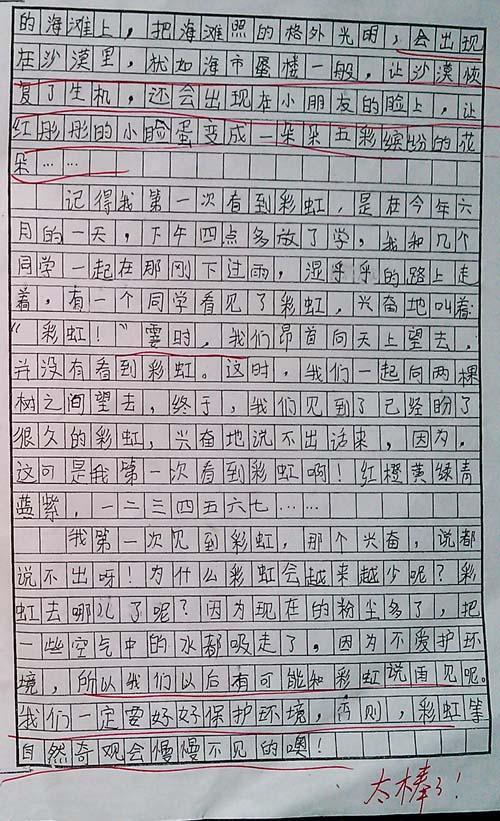 的海滩上，把海滩照的格外光明，会出现
在沙漠里，犹如海市蜃楼一般，让沙漠恢
复了生机，还会出现在小朋友的脸上，让
红彤彤的小脸蛋变成一朵朵五彩缤纷的花
朵……
记得我第一次看到彩虹，是在今年六
月的一天，下午四点多放了学，我和几个
同学一起在那刚下过雨，湿乎乎的路上走
着，有一个同学看见了彩虹，兴奋地叫着：
“彩虹！”霎时，我们昂首向天上望去，
并没有看到彩虹。这时，我们一起向两棵
树之间望去，终于，我们见到了已经盼了
很久的彩虹，兴奋地说不出话来，因为，
这可是我第一次看到彩虹啊！红橙黄绿青
蓝紫，一二三四五六七……
我第一次见到彩虹，那个兴奋，说都
说不出呀！为什么彩虹会越来越少呢？彩
虹去哪儿了呢？因为现在的粉尘多了，把
一些空气中的水都吸走了，因为不爱护环
境，所以我们以后有可能和彩虹说再见呢。
我们一定要好好保护环境，否则，彩虹等
自然奇观会慢慢不见的噢！
太棒了！